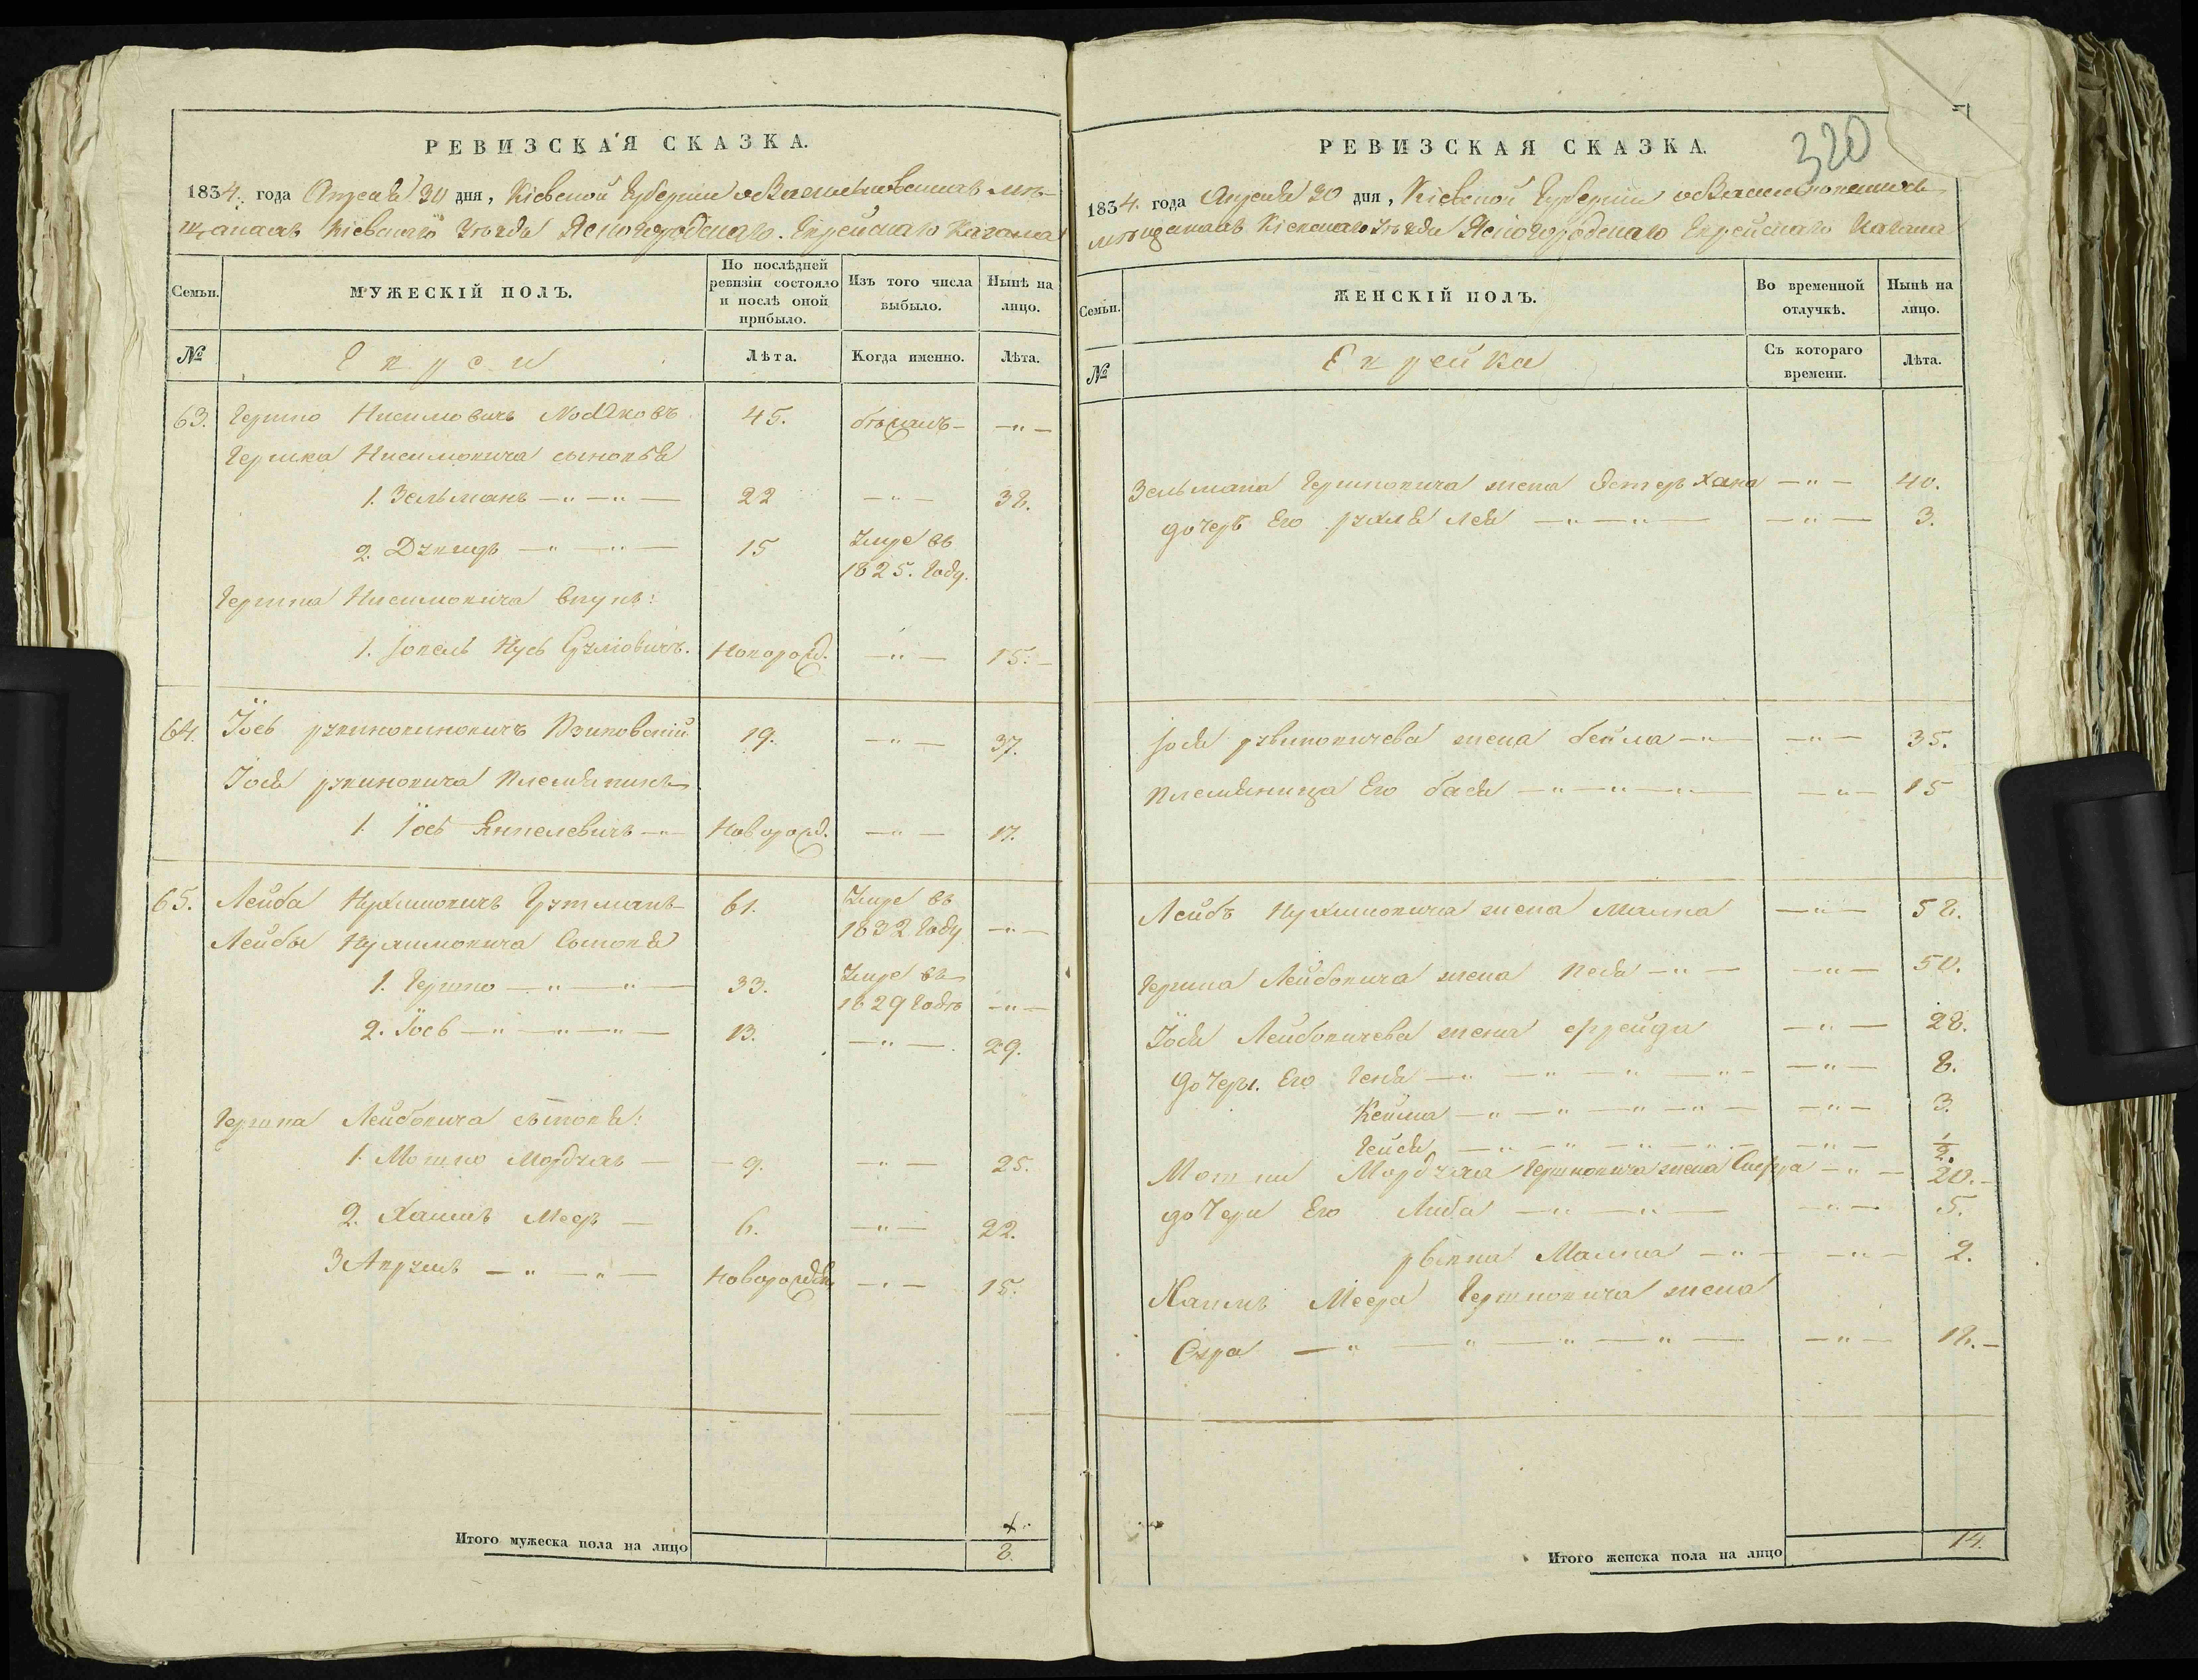 РЕВИЗСКАЯ СКАЗКА.
1834. года Апреля 30 дня, Кіевской Губерніи о Василковскихъ мѣ-
щанахъ Кіевскаго уѣзда Ясногородскаго. Еврейскаго Кагала
Семьи.
МУЖЕСКІЙ ПОЛЪ.
По послѣдней ревизіи состояло и послѣ оной прибыло.
Изъ того числа выбыло.
Нынѣ на лицо.
№
Евреи
Лѣта.
Когда именно.
Лѣта.
63. Гершко Нисимовичъ 45. бѣжалъ — " —
Гершка Нисимовича сыновья
1. Зельманъ — " — " — 22 — " — 38.
2. Дувидъ — " — " — 15 Умре въ
1825. году.
Гершка Нисимовича внукъ:
1. Іовель Нусь Новорожд. — " — 15. —
64. Іось Рувиновичъ 19. — " — 37.
Іося Рувиновича племянникъ
1. Іось Янкелевичъ — " — Новорожд. — " — 17.
65. Лейба Нухимовичъ Гутманъ 61. Умре въ
1832 году — " —
Лейбы Нухимовича сыновья
1. Гершко — " — " — 33. Умре въ
1829 годѣ — " —
2. Іось — " — " — " — 13. — " — 29.
Гершка Лейбовича сыновья:
1. Мошко Мордхай — 9. — " — 25.
2. Хаимъ Меер — 6. — " — 22.
3 Аврумъ — " — " — Новорожден — " — 15.
Итого мужеска пола на лицо 8.
320
РЕВИЗСКАЯ СКАЗКА.
1834. года Апреля 30 дня, Кіевской Губерніи о Василковскихъ
мѣщанахъ Кіевскаго уѣзда Ясногородскаго Еврейскаго Кагала
Семьи.
ЖЕНСКІЙ ПОЛЪ.
Во временной отлучкѣ.
Нынѣ на лицо.
№
Еврейки
Съ котораго времени.
Лѣта.
Зельмана Гершковича жена Естер Хана — " — 40.
дочерь Его Рухля Лея — " — " — — " — 3.
Іося Рувиновичева жена бейла — " — — " — 35.
племянница Его бася — " — " — " — — " — 15
Лейбы Нухимовича жена Малка — " — 58.
Гершка Лейбовича жена Песя — " — — " — 50.
Іося Лейбовичева жена фрейда — " — 28.
дочеры. Его Геня — " — " — " — " — — " — 8.
Кейла — " — " — " — " — — " — 3.
Гейся — " — " — " — " — — " — 1/2.
Мошки Мордхая Гершковича жена — " — 20. —
дочери Его Либа — " — " — — " — 5.
Рывка Малка — " — — " — 2.
Хаима Меера Гершковича жена
Сура — " — " — " — " — — " — 18. —
Итого женска пола на лицо 14.